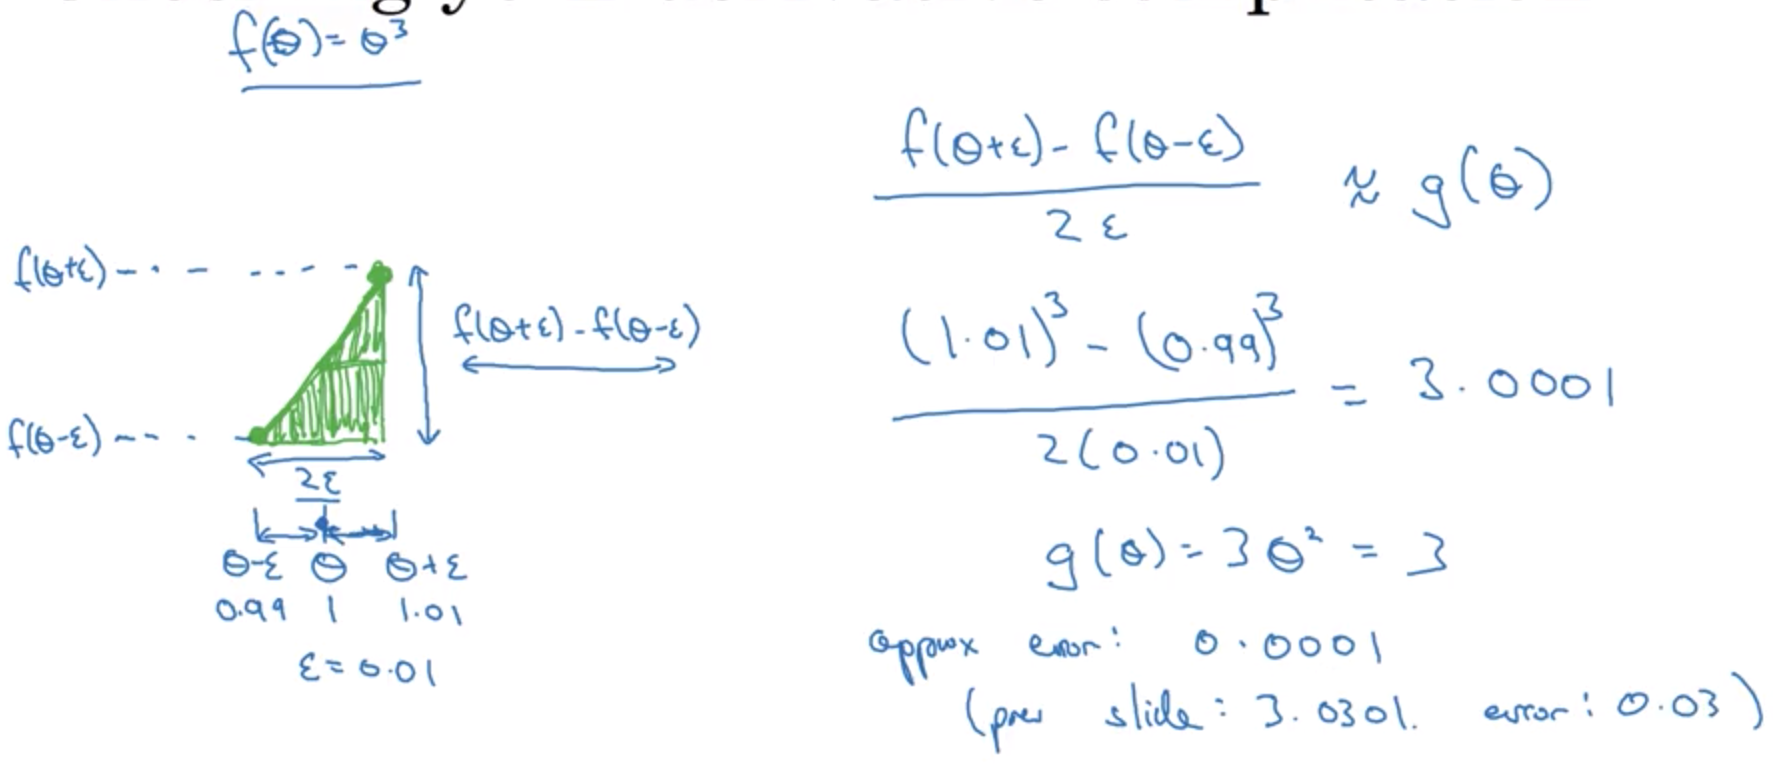 f(θ) = θ³
f(θ+ε) - f(θ-ε)
2ε
≈ g(θ)
f(θ+ε)
f(θ+ε) - f(θ-ε)
f(θ-ε)
2ε
θ-ε θ θ+ε
0.99 1 1.01
ε = 0.01
(1.01)³ - (0.99)³
2(0.01)
= 3.0001
g(θ) = 3θ² = 3
approx error: 0.0001
(prev slide: 3.0301. error: 0.03)